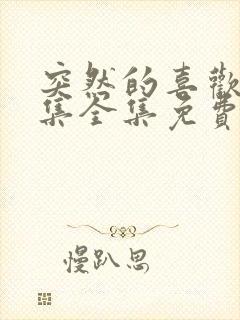 突然的喜歡
集全集免費
慢趴思